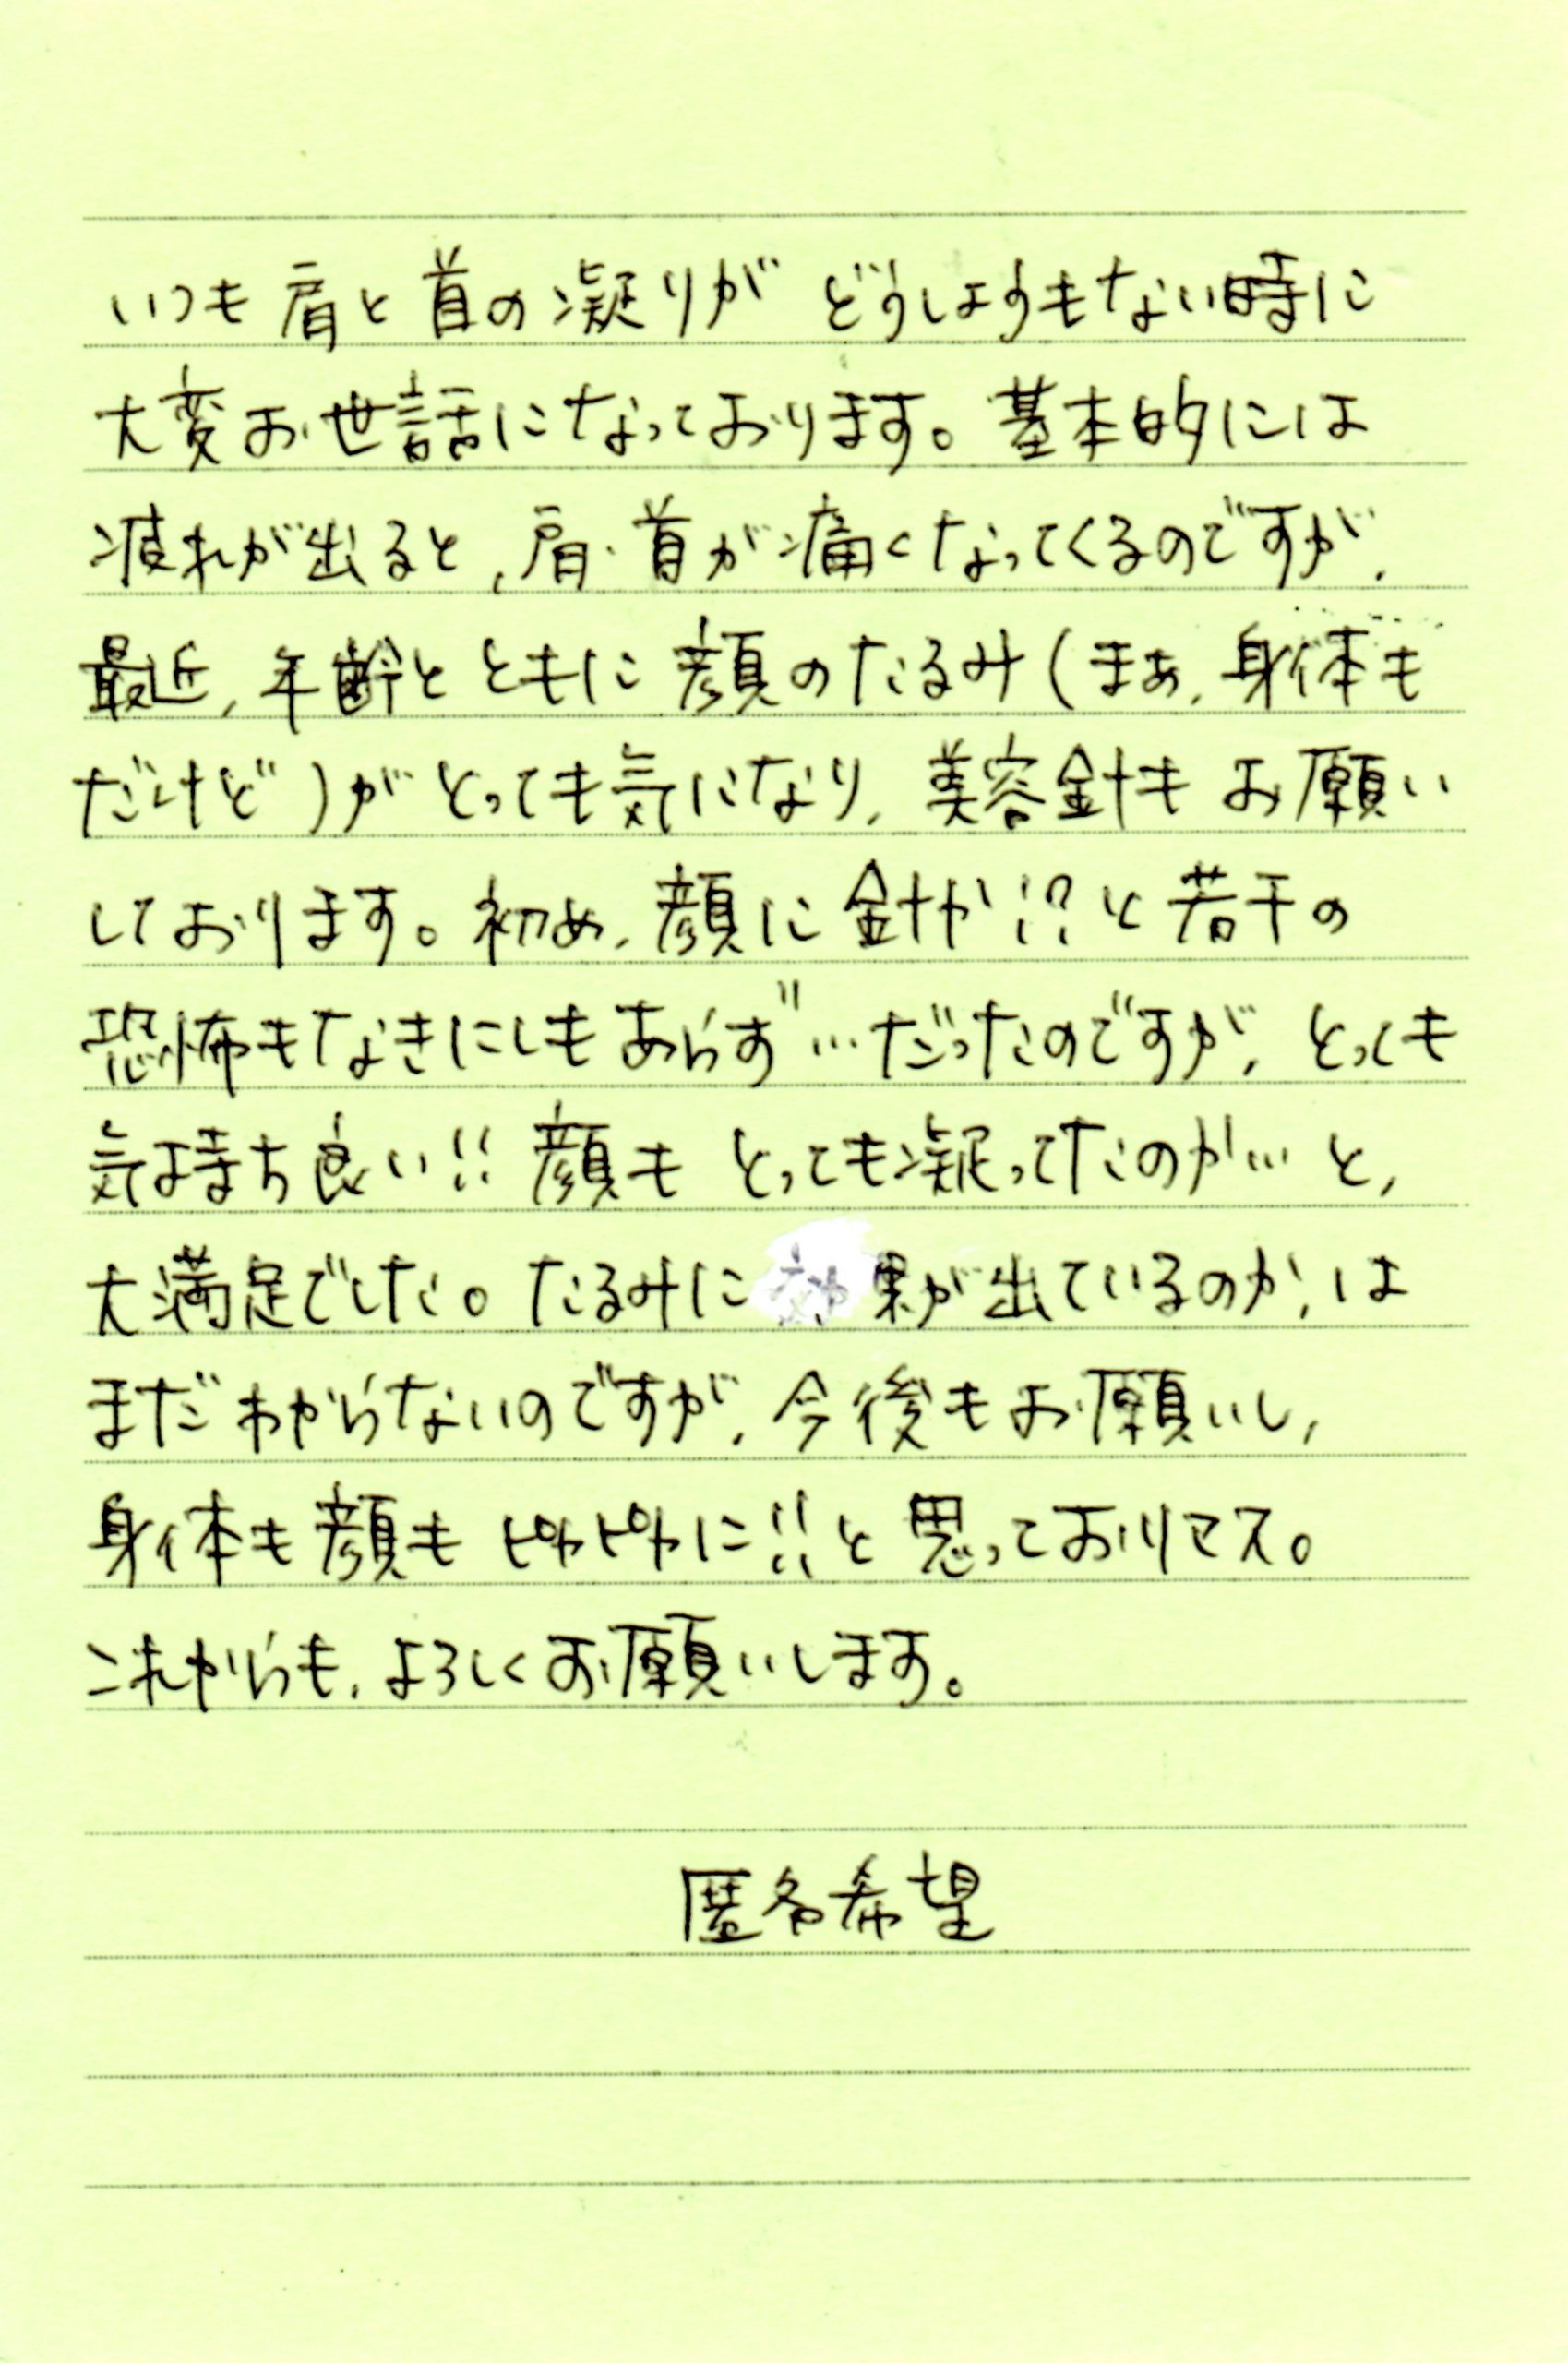 いつも肩と首の凝りが どうしようもない時に
大変お世話になっております。基本的には
疲れが出ると、肩・首が痛くなってくるのですが、
最近、年齢とともに顔のたるみ(まぁ、身体も
だけど)がとっても気になり、美容針もお願い
しております。初め、顔に針か!?と若干の
恐怖もなきにしもあらず…だったのですが、とっても
気持ち良い!!顔もとっても凝ってたのか…と、
大満足でした。たるみに効果が出ているのか、は
まだわからないのですが、今後もお願いし、
身体も顔もピカピカに!!と思っておりマス。
これからも、よろしくお願いします。
匿名希望